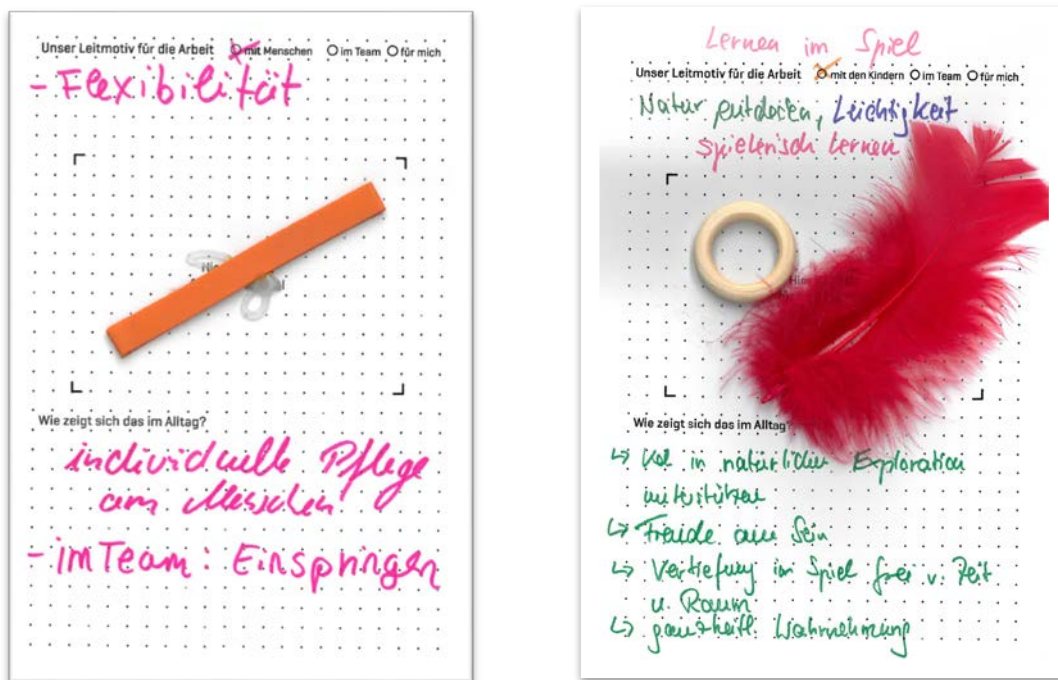 Unser Leitmotiv für die Arbeit mit Menschen im Team für mich
- Flexibilität
Wie zeigt sich das im Alltag?
individuelle Pflege
am Menschen
- im Team: Einspringen
Lernen im Spiel
Unser Leitmotiv für die Arbeit mit den Kindern im Team für mich
Natur entdecken, Leichtigkeit
spielerisch lernen
Wie zeigt sich das im Alltag
in natürlicher Exploration
unterstützen
Freude am Sein
Vertiefung im Spiel frei v. Zeit
u. Raum
ganzheitl. Wahrnehmung